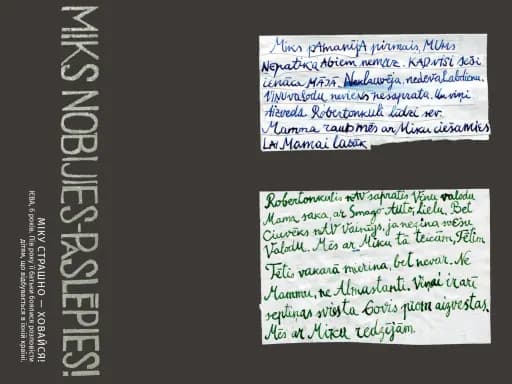 MIKS NOBIJIES-PASLĒPIES!
МІКУ СТРАШНО — ХОВАЙСЯ!
ІЄВА, 6 років. Пів року її батьки боялися розповісти
дітям, що відбувається в їхній країні.
Miks pAmanījA pirmais, MUMS
Nepatika Abiem nemaz. KAD viSi seši
ienāca MĀJĀ. Neklauvēja, nedeva Labdienu.
Viņu valodu neviens nesaprata. Un viņi
Aizveda Robertonkuli līdzi sev.
Mamma raud mēs ar Miku ciešamies
LAI Mamai labāk
Robertonkulis nAV sapratis Viņu valodu
Mama saka, ar Smago Auto, lielu. Bet
Cilvēks nAV vainīgs, ja nezina svešu
Valodu. Mēs ar Miku tā teicām, Tētim
Tētis vakarā mierina, bet nevar. Nē
Mammu, ne Almastanti. Viņai irarī
septiņas sviesta Govis prom aizvestas.
Mēs ar Miku redzējām.